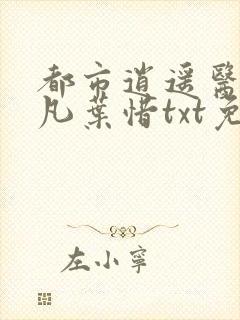 都市逍遥醫
凡葉惜txt免
左小寧